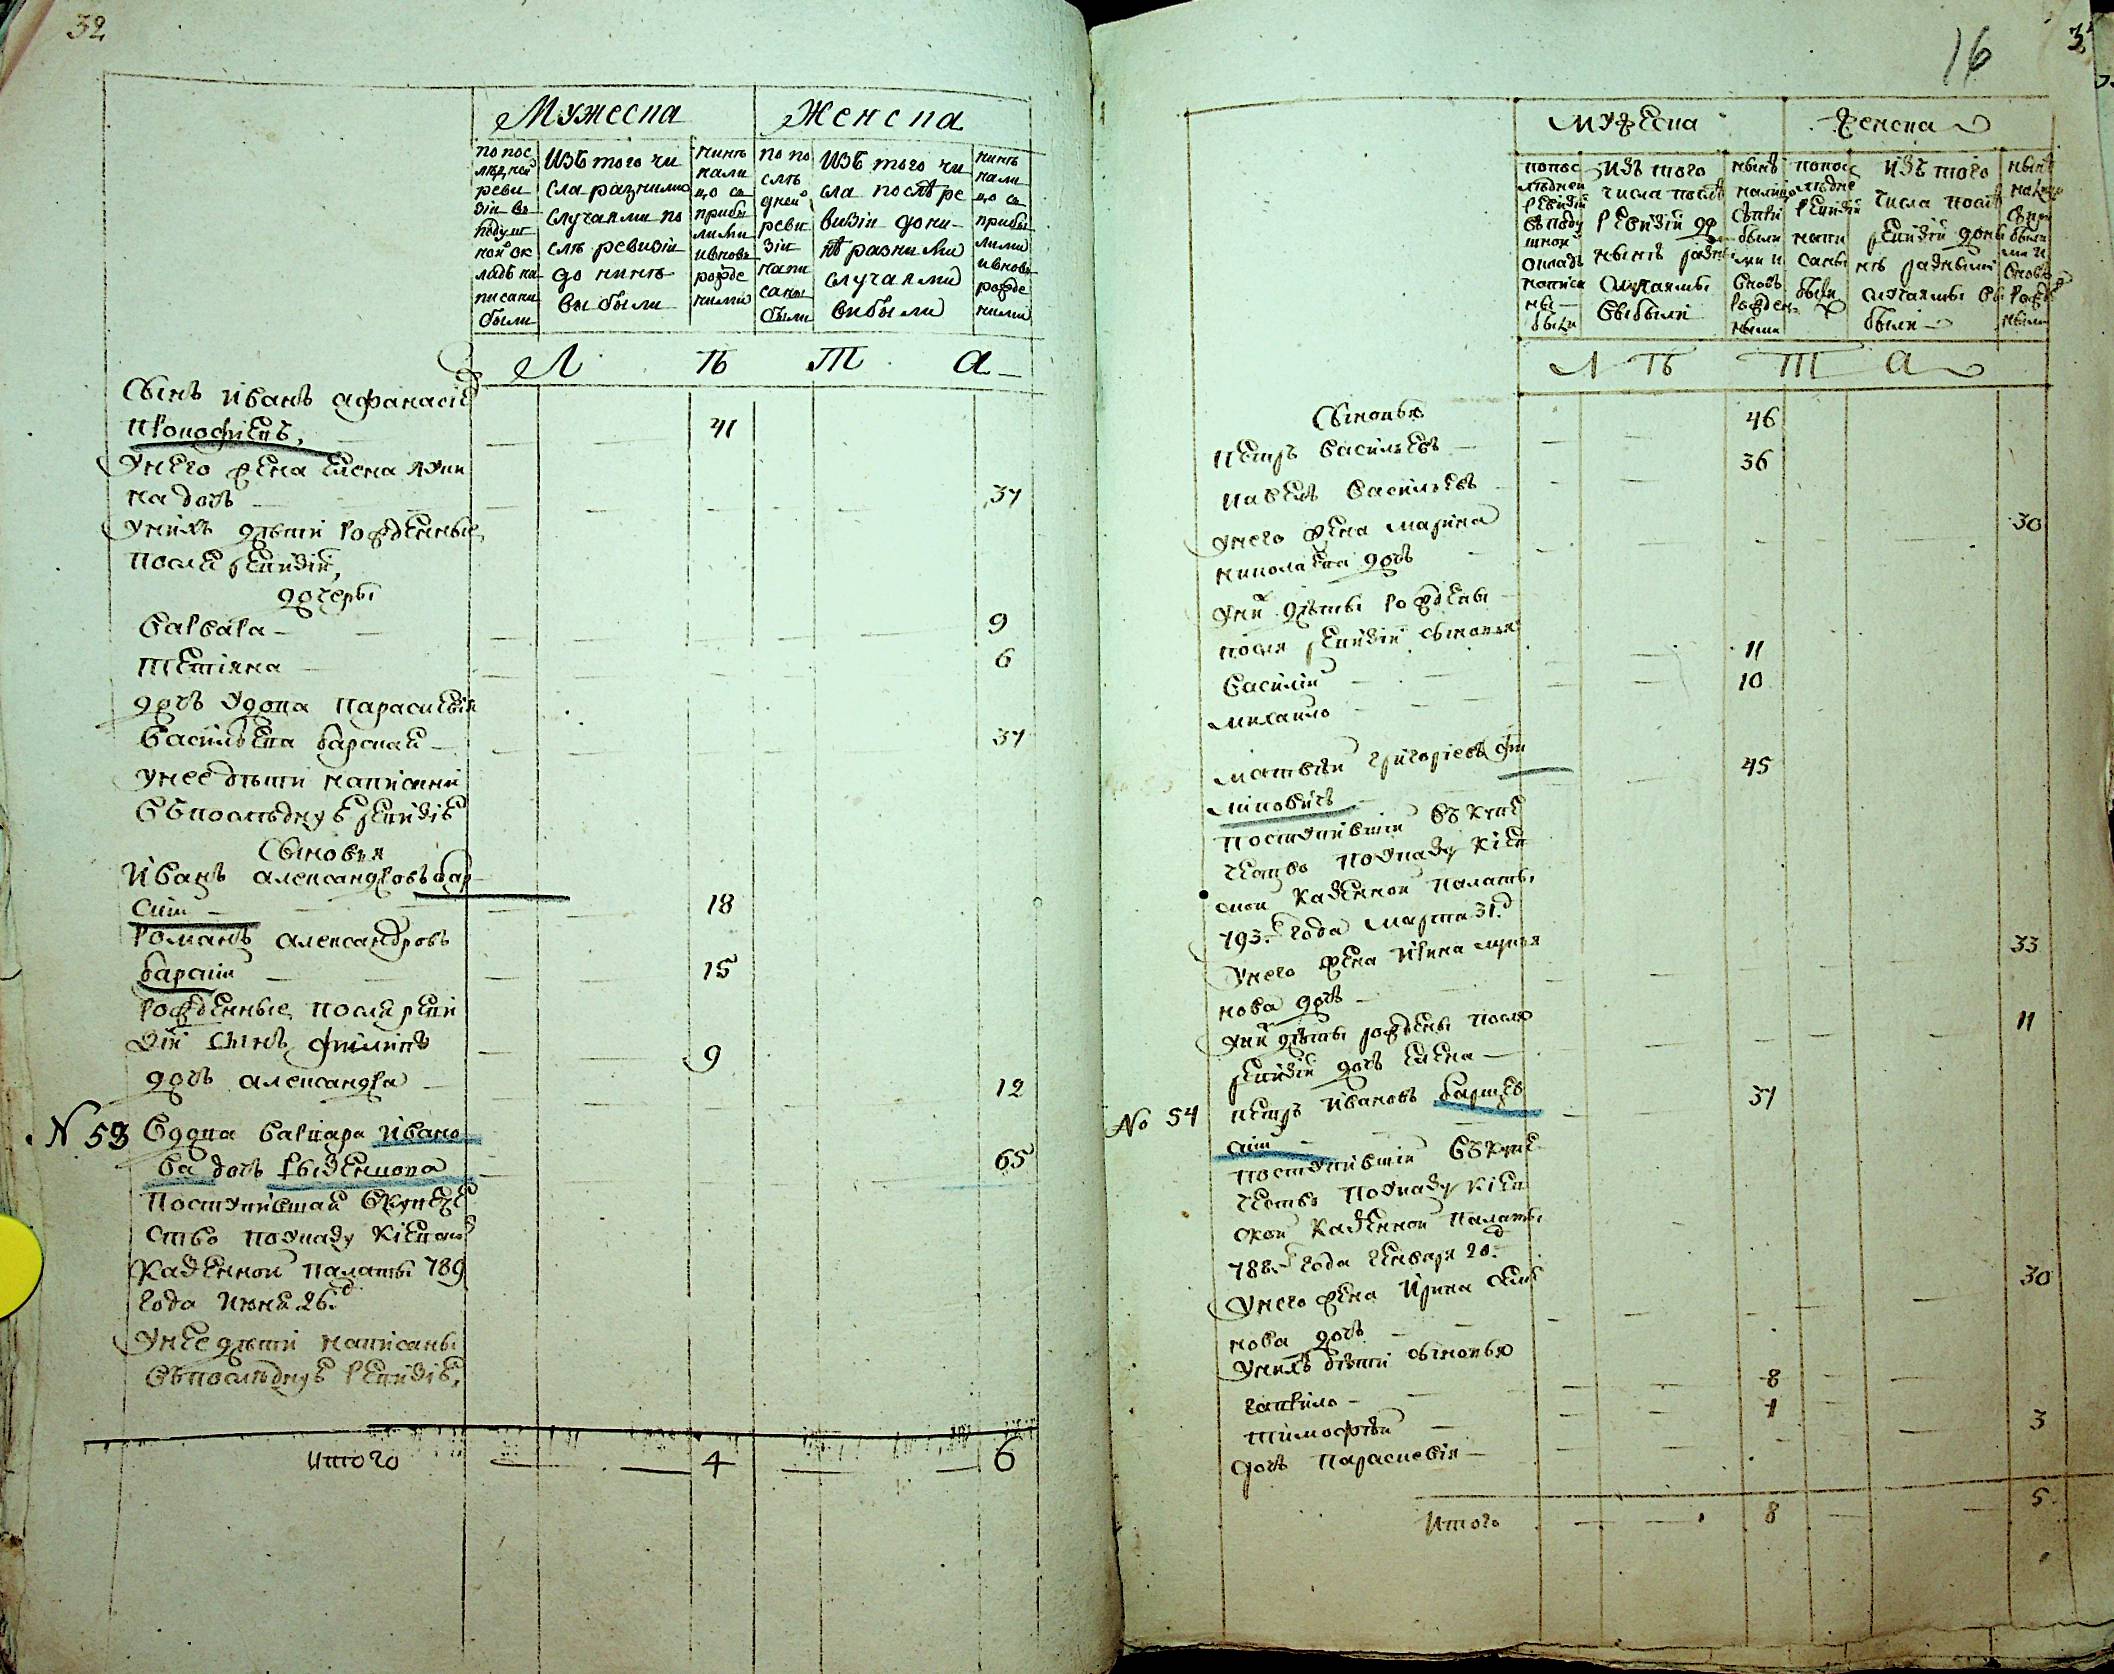 32
Мужеска Женска
по пос
лѣдней
реви
зіи въ
подуш
ной ок
ладъ на
писани
были
Изъ того чи
сла разними
случаями по
слѣ ревизіи
до нинѣ
выбыли
нинѣ
нали
цо съ
прибы
лими
ивновь
рожде
ними
по по
слѣ
дней
реви
зіи
напи
саны
были
Изъ того чи
сла послѣ ре
визіи до ни
нѣ разними
случаями
вибыли
нинѣ
нали
цо съ
прибы
лими
ивновь
рожде
ними
Л Ѣ Т А
Сынъ Иванъ Афанасіе
Прокофіевъ, 41
Унего жена Елена Луки
на дочь 37
Унихъ дѣти рожденные
После ревизіи,
дочери
Варвара 9
Тетіяна 6
дочь Удова Парасковія
Василѣва барская 37
Унее дѣти написани
Въпоследнуѣ ревизіѣ
Сыновья
Иванъ Александровъ бар
скій 18
Романъ Александровъ
барскій 15
Рожденные после реви
зіи Сынъ Филипъ 9
дочь Александра 12
N 53 Вдова Варвара Ивано
ва дочь 65
Поступившая Вкупече
ство поуказу Кіевской
Казенной Палаты 789
года Июня 26.
Унее дѣти написаны
Въпоследнуѣ ревизіѣ,
Итого 4 6
16
Мужеска Женска
попос
лѣдней
ревизіи
въ поду
шной
окладъ
написа
ны
были
изъ того
числа послѣ
ревизіи до
нынѣ разны
случаямы
выбыли
нынѣ
налицо
съпри
были
ми и
вновь
рожден
ными
попос
лѣдне
ревизіи
напи
саны
были
изъ того
числа послѣ
ревизіи доны
нѣ разными
случаямы вы
были
нынѣ
налицо
съпри
были
ми и
вновь
рожд
ными
Л Ѣ Т А
Сыновья
Петръ Василіевъ 46
Павелъ Василіевъ 36
Унего жена Марина
Николаева дочь 30
Уни дѣты рождены
после ревизіи сыновья
Василій 11
Михайло 10
Матвѣй Григоріевъ Фи
линовичъ 45
Поступившій Въ купе
чество Поуказу Кіев
ской Казенной Палаты
793. года Марта 31.
Унего жена Ирина
нова дочь 33
Уни дѣты рождены после
ревизіи дочь Елена 11
No 54 Петръ Ивановъ
скій 37
Поступившій Въ купе
чество Поуказу Кіев
ской Казенной Палаты
788. года Генваря 20.
Унего жена Ирина
нова дочь 30
Унихъ дѣти сыновья
Гаврило 8
Тимофѣй 1
дочь Парасковія 3
Итого 8 5